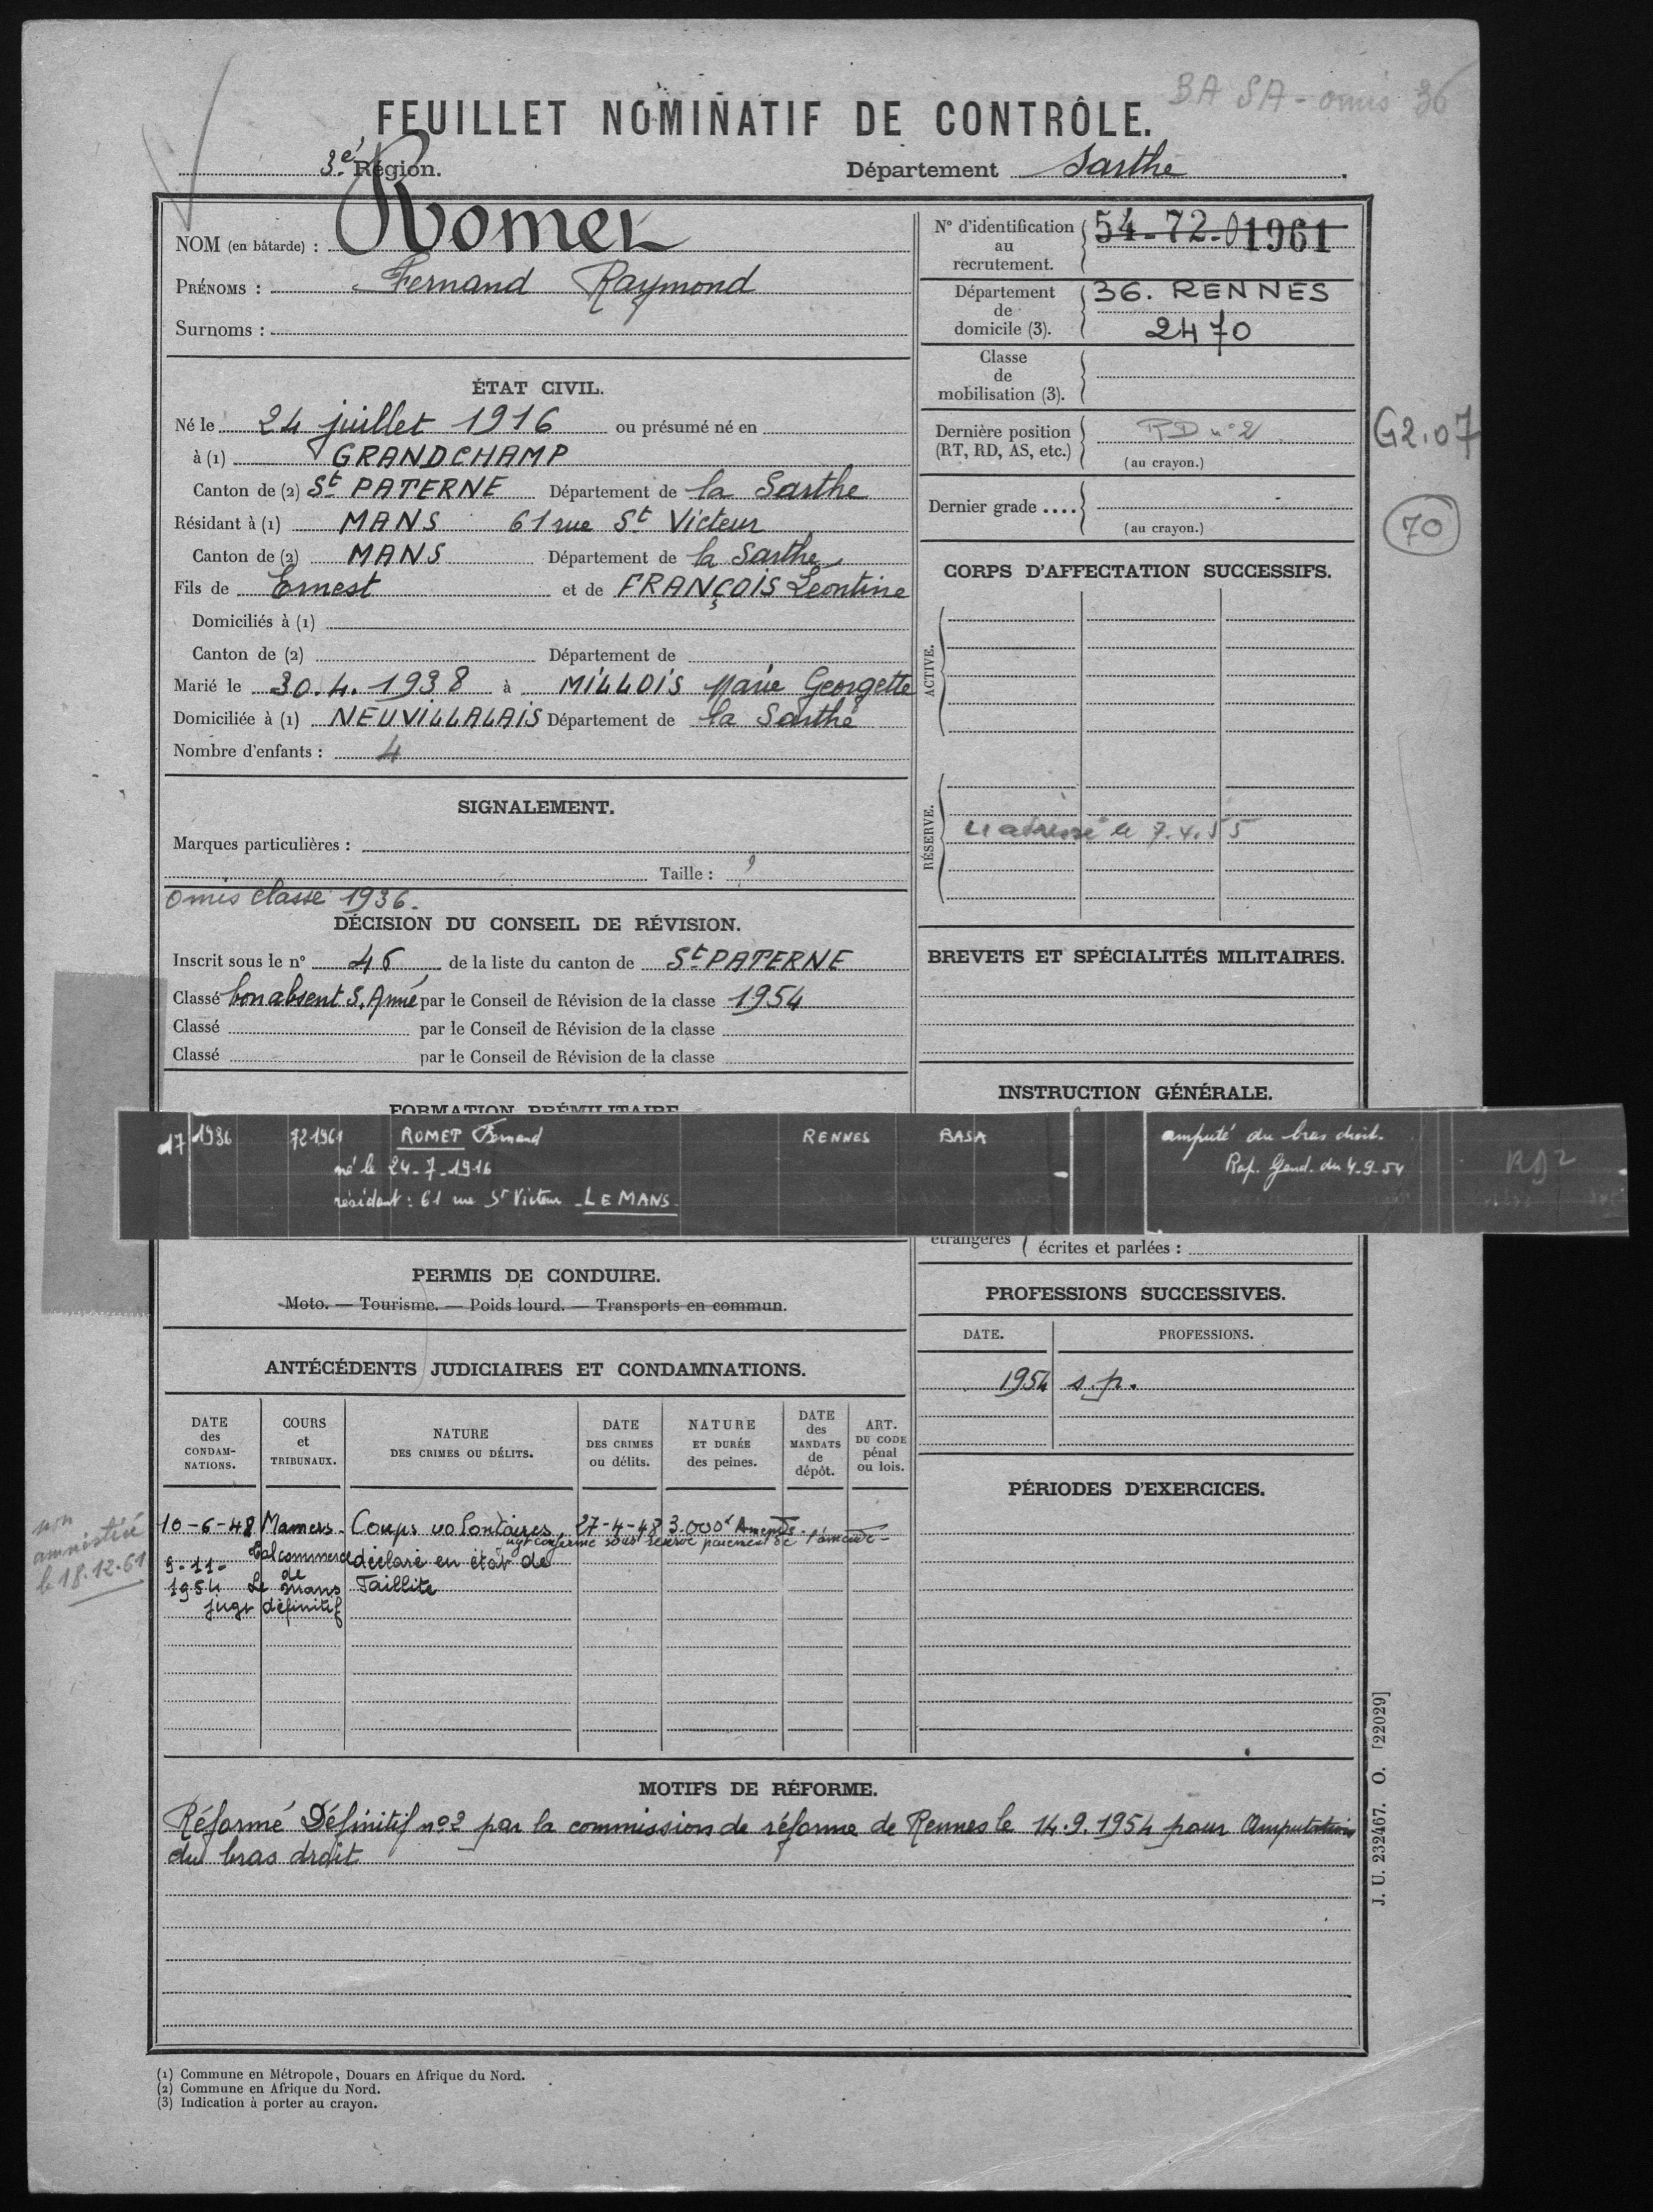 BA SA - omis 36
FEUILLET NOMINATIF DE CONTRÔLE.
3e Région. Département Sarthe.
NOM (en bâtarde) : Romet
PRÉNOMS : Fernand Raymond
Surnoms :
ÉTAT CIVIL.
Né le 24 juillet 1916 ou présumé né en
à (1) GRANDCHAMP
Canton de (2) St PATERNE Département de la Sarthe
Résidant à (1) MANS 61 rue St Victeur
Canton de (2) MANS Département de la Sarthe
Fils de Ernest et de FRANÇOIS Leontine
Domiciliés à (1)
Canton de (2) Département de
Marié le 30.4.1938 à MILLOIS Marie Georgette
Domiciliée à (1) NEUVILLALAIS Département de la Sarthe
Nombre d'enfants : 4
SIGNALEMENT.
Marques particulières :
Taille :
omis classe 1936.
DÉCISION DU CONSEIL DE RÉVISION.
Inscrit sous le n° 46 de la liste du canton de St PATERNE
Classé bon absent S. Armé par le Conseil de Révision de la classe 1954
Classé par le Conseil de Révision de la classe
Classé par le Conseil de Révision de la classe
FORMATION PRÉMILITAIRE
N° d'identification
au
recrutement.
54-72-01961
Département
de
domicile (3).
36. RENNES
2470
Classe
de
mobilisation (3).
Dernière position
(RT, RD, AS, etc.)
RD n°2
(au crayon.)
G2.07
Dernier grade ....
(au crayon.)
70
CORPS D'AFFECTATION SUCCESSIFS.
ACTIVE.
RÉSERVE.
le 7.4.55
BREVETS ET SPÉCIALITÉS MILITAIRES.
INSTRUCTION GÉNÉRALE.
17 1936 721961 ROMET Fernand RENNES BASA amputé du bras droit.
né le 24-7-1916 Rap. Gend. du 4-9-54 RD2
résidant : 61 rue St Victeur - LE MANS
étrangères écrites et parlées :
PERMIS DE CONDUIRE.
Moto. — Tourisme. — Poids lourd. — Transports en commun.
PROFESSIONS SUCCESSIVES.
DATE. PROFESSIONS.
1954 s.p.
ANTÉCÉDENTS JUDICIAIRES ET CONDAMNATIONS.
DATE des CONDAM-NATIONS.
COURS et TRIBUNAUX.
NATURE DES CRIMES OU DÉLITS.
DATE DES CRIMES ou délits.
NATURE ET DURÉE des peines.
DATE des MANDATS de dépôt.
ART. DU CODE pénal ou lois.
10-6-48 Mamers. Coups volontaires. 27-4-48 3.000f Amende.
jugt confirmé sous réserve paiement de l'amende-
9-11-1954 Tal commerce de Le Mans déclaré en état de Faillite
jugt définitif
non
amnistié
le 18.12.61
PÉRIODES D'EXERCICES.
MOTIFS DE RÉFORME.
Réformé Définitif n°2 par la commission de réforme de Rennes le 14.9.1954 pour Amputation
du bras droit
J. U. 232467. O. [22029]
(1) Commune en Métropole, Douars en Afrique du Nord.
(2) Commune en Afrique du Nord.
(3) Indication à porter au crayon.